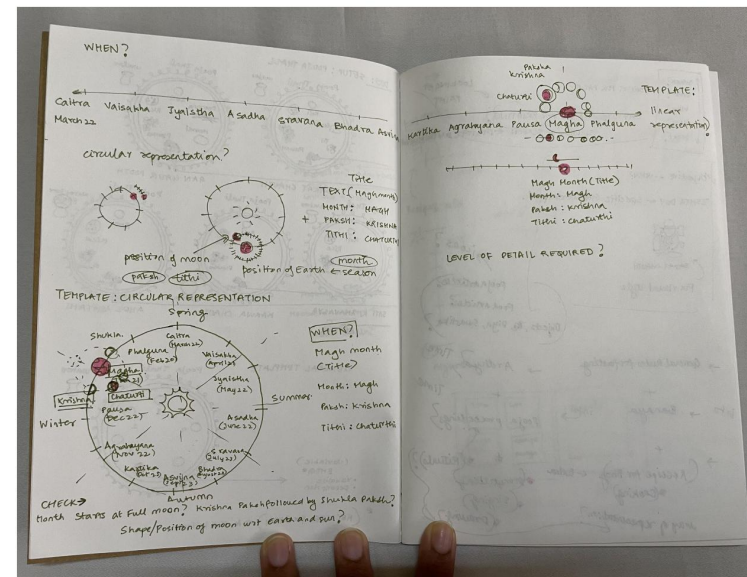 WHEN?
Caitra Vaisakha Jyaistha Asadha Sravana Bhadra
March 22
circular representation?
Title
TEXT (Magh month)
MONTH: MAGH
PAKSH: KRISHNA
TITHI: CHATURTHI
+
position of moon
paksh tithi
position of Earth
month
season
TEMPLATE: CIRCULAR REPRESENTATION
Spring
Shukla
Caitra
(March 22)
Phalguna
(Feb 20)
Vaisakha
(April 21)
Magha
Krishna
Chaturti
Jyaistha
(May 22)
Summer
Pausa
(Dec 22)
Winter
Asadha
(June 22)
Agrahayana
(Nov 22)
Sravana
(July 23)
Kartika
Bhadra
Asvina
Autumn
WHEN?
Magh month
(Title)
Month: Magh
Paksh: Krishna
Tithi: Chaturthi
CHECK→
Month starts at Full moon? Krishna Paksh followed by Shukla Paksh?
Shape/Position of moon wrt earth and sun?
Paksha
Krishna
Chaturti
TEMPLATE:
linear
representation?
Kartika Agrahayana Pausa Magha Phalguna
Magh Month (Title)
Month: Magh
Paksh: Krishna
Tithi: Chaturthi
LEVEL OF DETAIL REQUIRED?